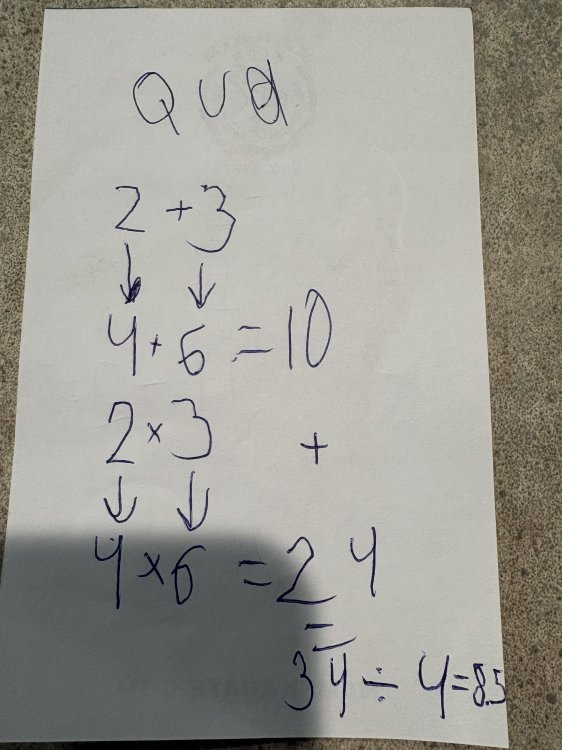 QUA
2 + 3
↓ ↓
4 + 6 = 10
2 × 3 +
↓ ↓
4 × 6 = 24
=
34 ÷ 4 = 8.5